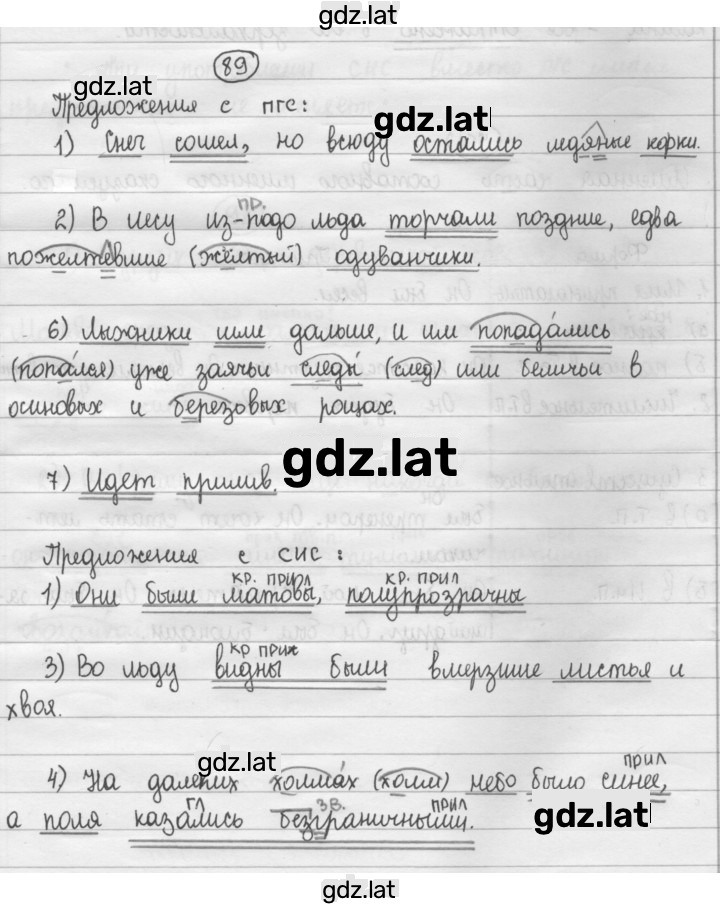 gdz.lat
89
gdz.lat
Предложения с пгс:
gdz.lat
1) Снег сошел, но всюду остались ледяные корки.
пр.
2) В лесу из-подо льда торчали поздние, едва
пожелтевшие (жёлтый) одуванчики.
6) Лыжники шли дальше, и им попада́лись
(попа́лся) уже заячьи следы́ (след) или беличьи в
осиновых и берёзовых рощах.
gdz.lat
7) Идет прилив.
Предложения с СИС:
кр. прил кр. прил
1) Они были матовы, полупрозрачны
кр прил
3) Во льду видны были вмерзшие листья и
хвоя.
gdz.lat
прил
4) На далеких холма́х (холм) небо было синее,
гл зв. прил
а поля казались безграничными.
gdz.lat
gdz.lat